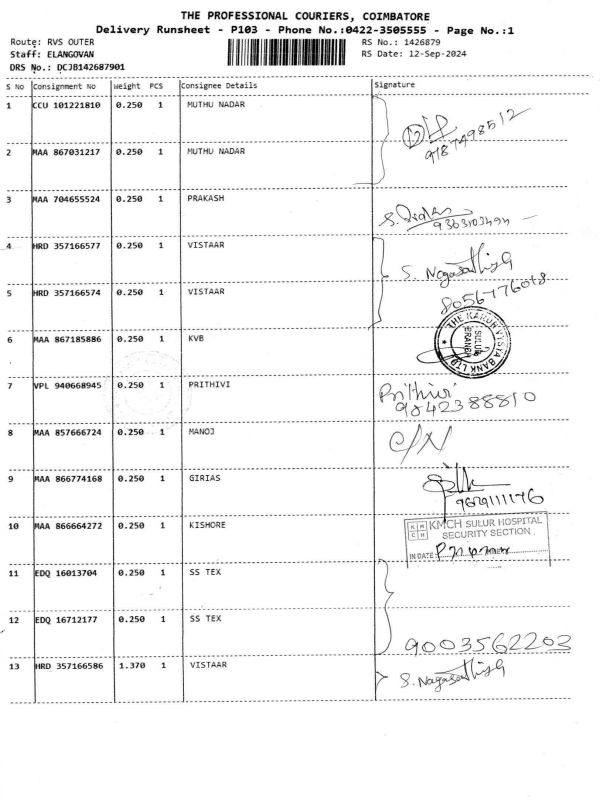 THE PROFESSIONAL COURIERS, COIMBATORE
Delivery Runsheet - P103 - Phone No.:0422-3505555 - Page No.:1
Route: RVS OUTER
RS No.: 1426879
Staff: ELANGOVAN
RS Date: 12-Sep-2024
DRS No.: DCJB142687901
S No Consignment No Weight PCS Consignee Details Signature
1 CCU 101221810 0.250 1 MUTHU NADAR
9187498512
2 MAA 867031217 0.250 1 MUTHU NADAR
3 MAA 704655524 0.250 1 PRAKASH
9363103494
4 HRD 357166577 0.250 1 VISTAAR
S. Nagasathish
5 HRD 357166574 0.250 1 VISTAAR
8056776048
6 MAA 867185886 0.250 1 KVB
THE KARUR VYSYA BANK LTD
SULUR
BRANCH
7 VPL 940668945 0.250 1 PRITHIVI Prithivi
9842388810
8 MAA 857666724 0.250 1 MANOJ C/N
9 MAA 866774168 0.250 1 GIRIAS
9629111176
10 MAA 866664272 0.250 1 KISHORE
KMCH KMCH SULUR HOSPITAL
SECURITY SECTION
IN DATE
11 EDQ 16013704 0.250 1 SS TEX
12 EDQ 16712177 0.250 1 SS TEX
9003562203
13 HRD 357166586 1.370 1 VISTAAR S. Nagasathish